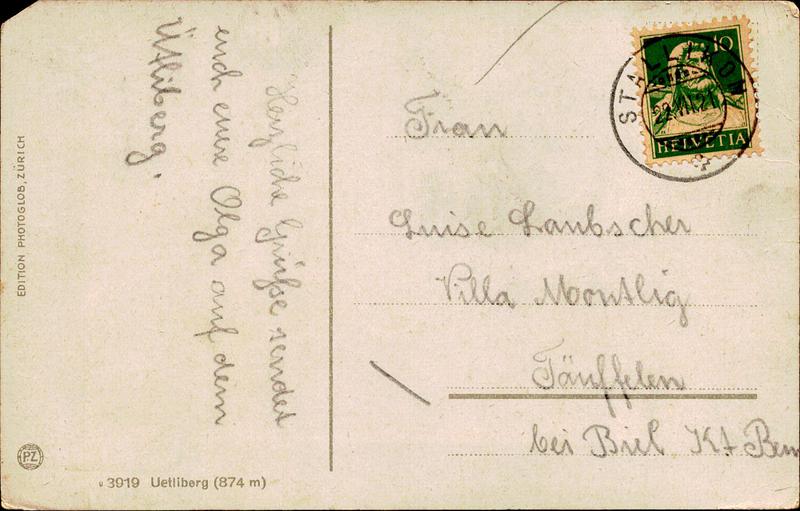 Herzliche Grüsse sendet
euch eure Olga auf dem
Ütliberg.
EDITION PHOTOGLOB, ZÜRICH
PZ
3919 Uetliberg (874 m)
10
HELVETIA
STALLIKON
22.VII.21
Frau
Luise Laubscher
Villa Montlig
Täuffelen
bei Biel Kt Bern